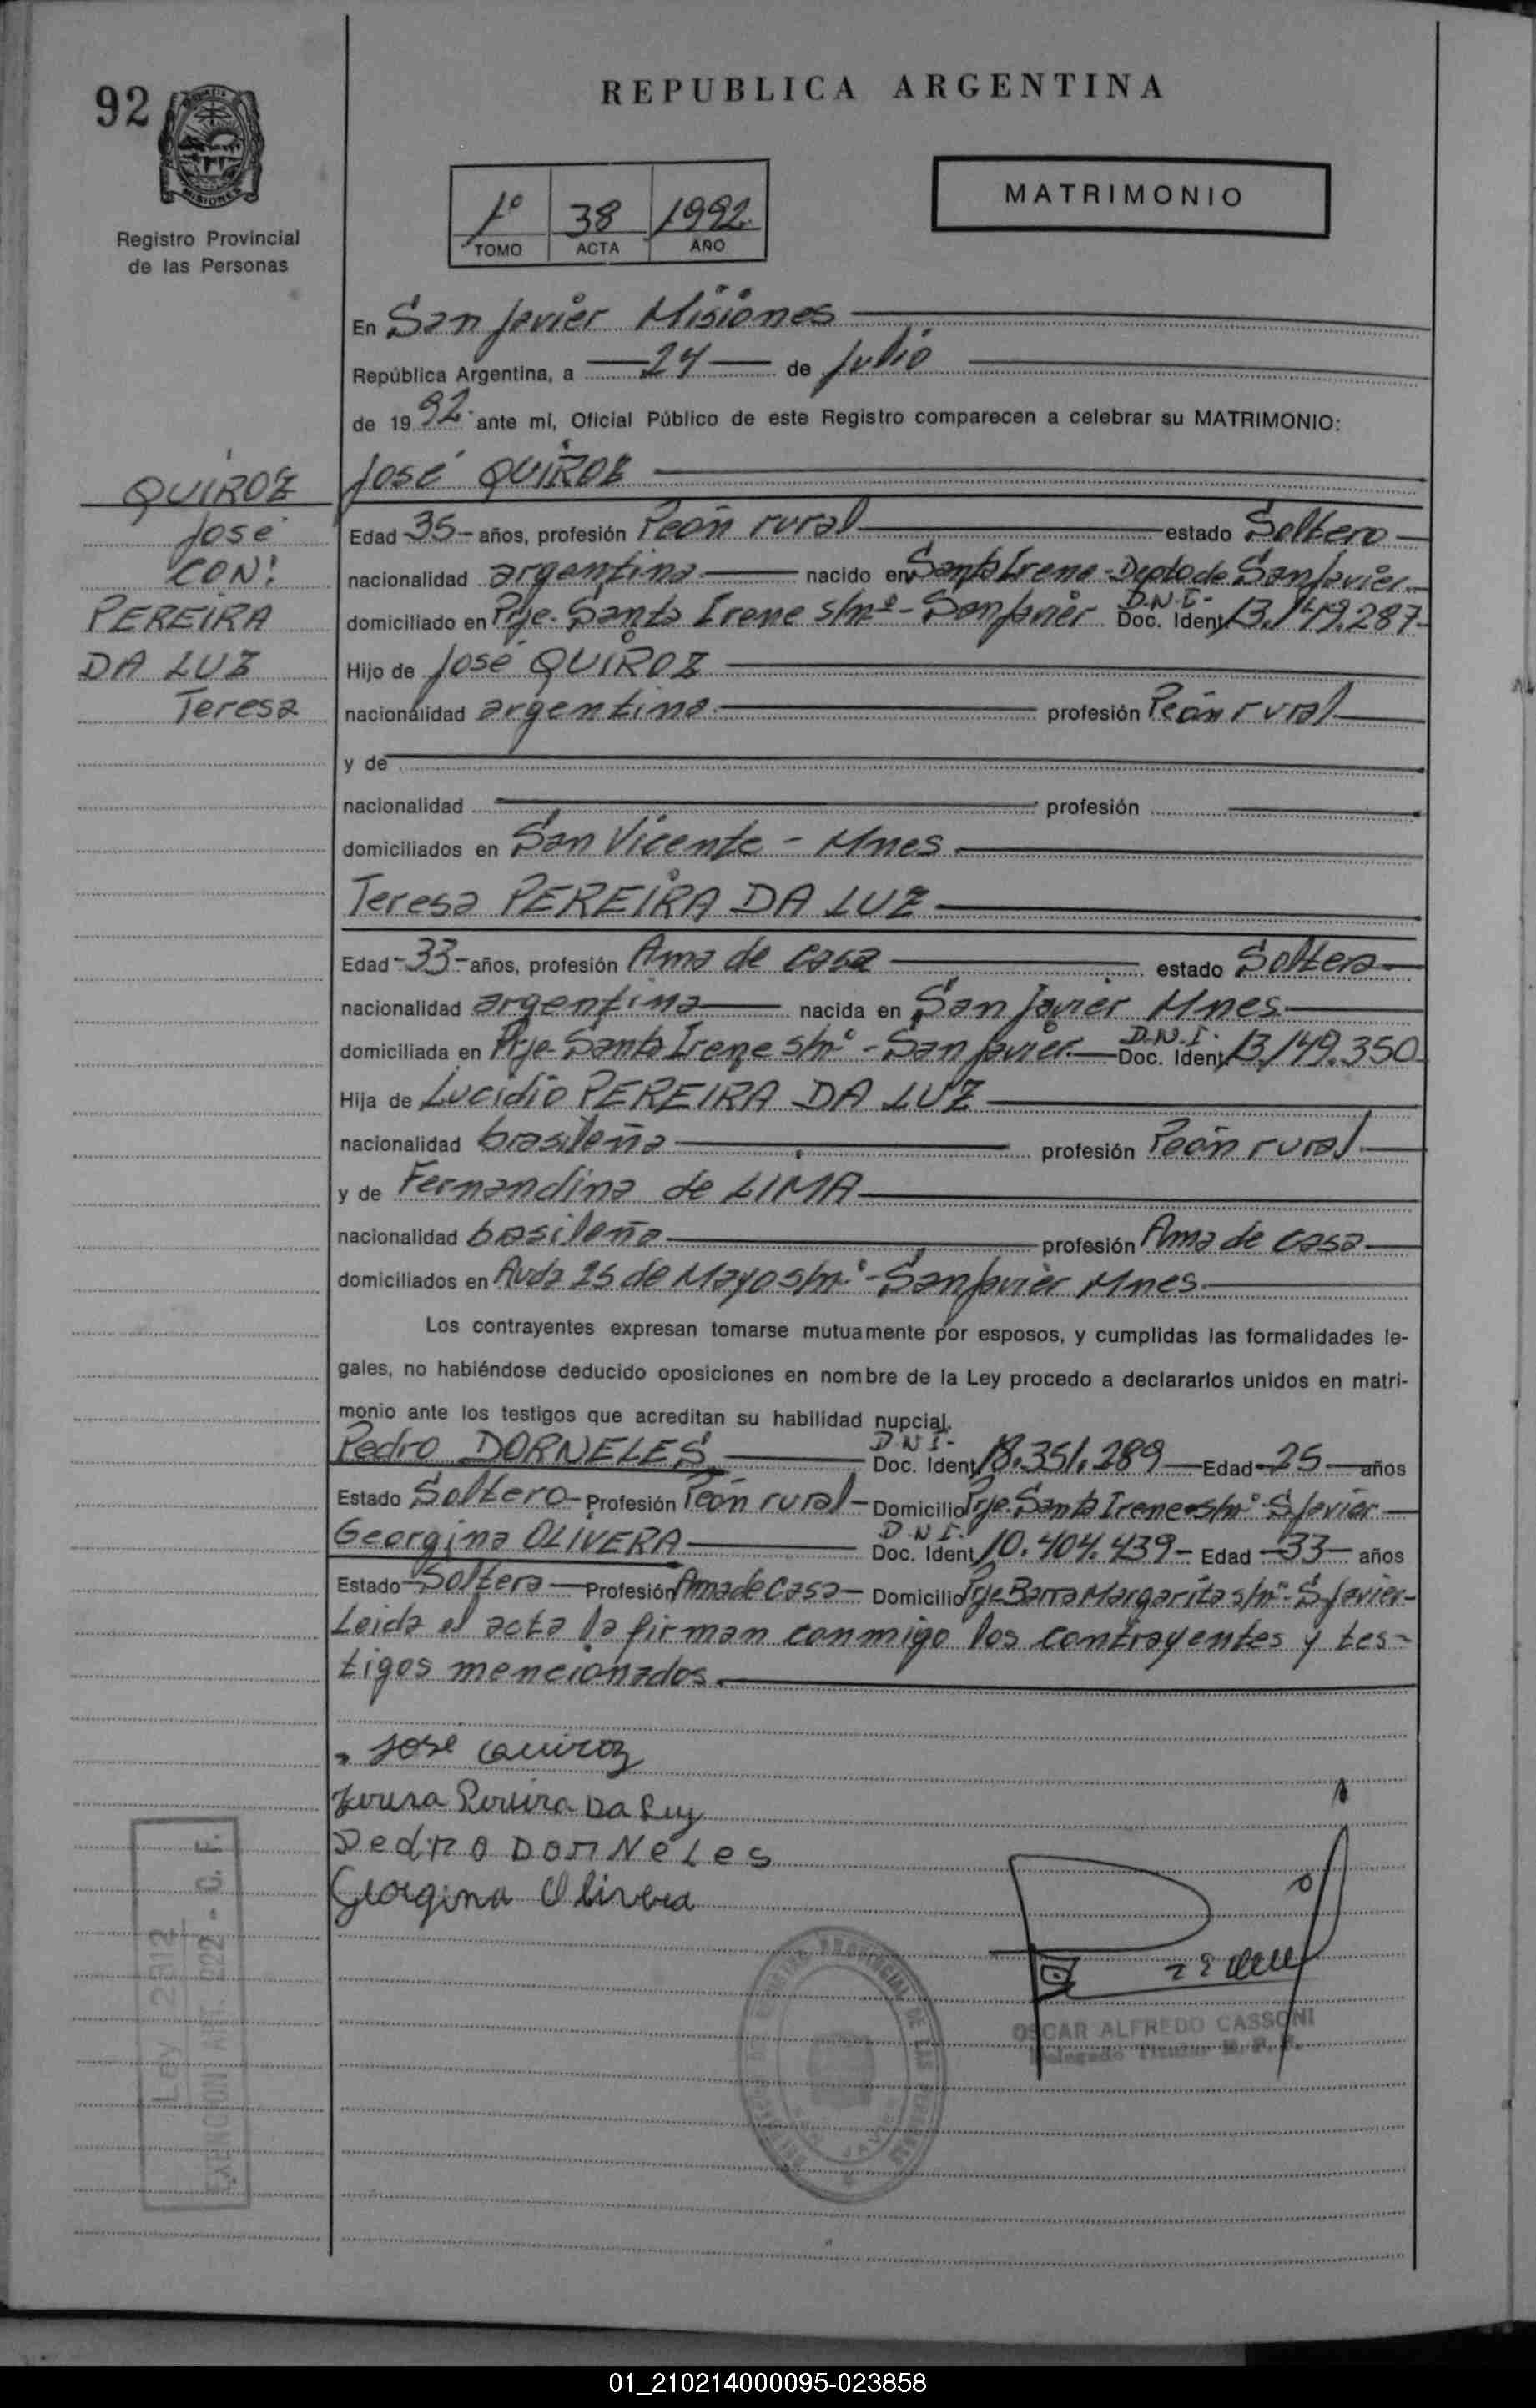 92
REPUBLICA ARGENTINA
MISIONES
Registro Provincial
de las Personas
1º 38 1992
TOMO ACTA AÑO
MATRIMONIO
En San Javier Misiones
República Argentina, a 24 de Julio
de 1992. ante mí, Oficial Público de este Registro comparecen a celebrar su MATRIMONIO:
QUIROZ
José
CON:
PEREIRA
DA LUZ
Teresa
José QUIROZ
Edad -35- años, profesión Peón rural estado Soltero
nacionalidad argentina nacido en Santa Irene - Depto de San Javier
domiciliado en Pje. Santa Irene s/nº - San Javier D.N.I. Doc. Ident 13.149.287
Hijo de José QUIROZ
nacionalidad argentina profesión Peón rural
y de
nacionalidad profesión
domiciliados en San Vicente - Mnes
Teresa PEREIRA DA LUZ
Edad -33- años, profesión Ama de casa estado Soltera
nacionalidad argentina nacida en San Javier Mnes
domiciliada en Pje Santa Irene s/nº - San Javier D.N.I. Doc. Ident 13.149.350
Hija de Lucidio PEREIRA DA LUZ
nacionalidad brasileña profesión Peón rural
y de Fernandina de LIMA
nacionalidad brasileña profesión Ama de casa
domiciliados en Avda 25 de Mayo s/nº - San Javier Mnes
Los contrayentes expresan tomarse mutuamente por esposos, y cumplidas las formalidades le-
gales, no habiéndose deducido oposiciones en nombre de la Ley procedo a declararlos unidos en matri-
monio ante los testigos que acreditan su habilidad nupcial.
Pedro DORNELES D.N.I. Doc. Ident 18.351.289 Edad 25 años
Estado Soltero Profesión Peón rural Domicilio Pje. Santa Irene s/nº S Javier
Georgina OLIVERA D.N.I. Doc. Ident 10.404.439 Edad 33 años
Estado Soltera Profesión Ama de casa Domicilio Pje Barra Margarita s/nº S Javier
Leida el acta la firman conmigo los contrayentes y tes-
tigos mencionados
Jose Quiroz
Teresa Pereira Da Luz
Pedro DORNeLes
Georgina Olivera
OSCAR ALFREDO CASSONI
Delegado Titular R. P. P.
01_210214000095-023858